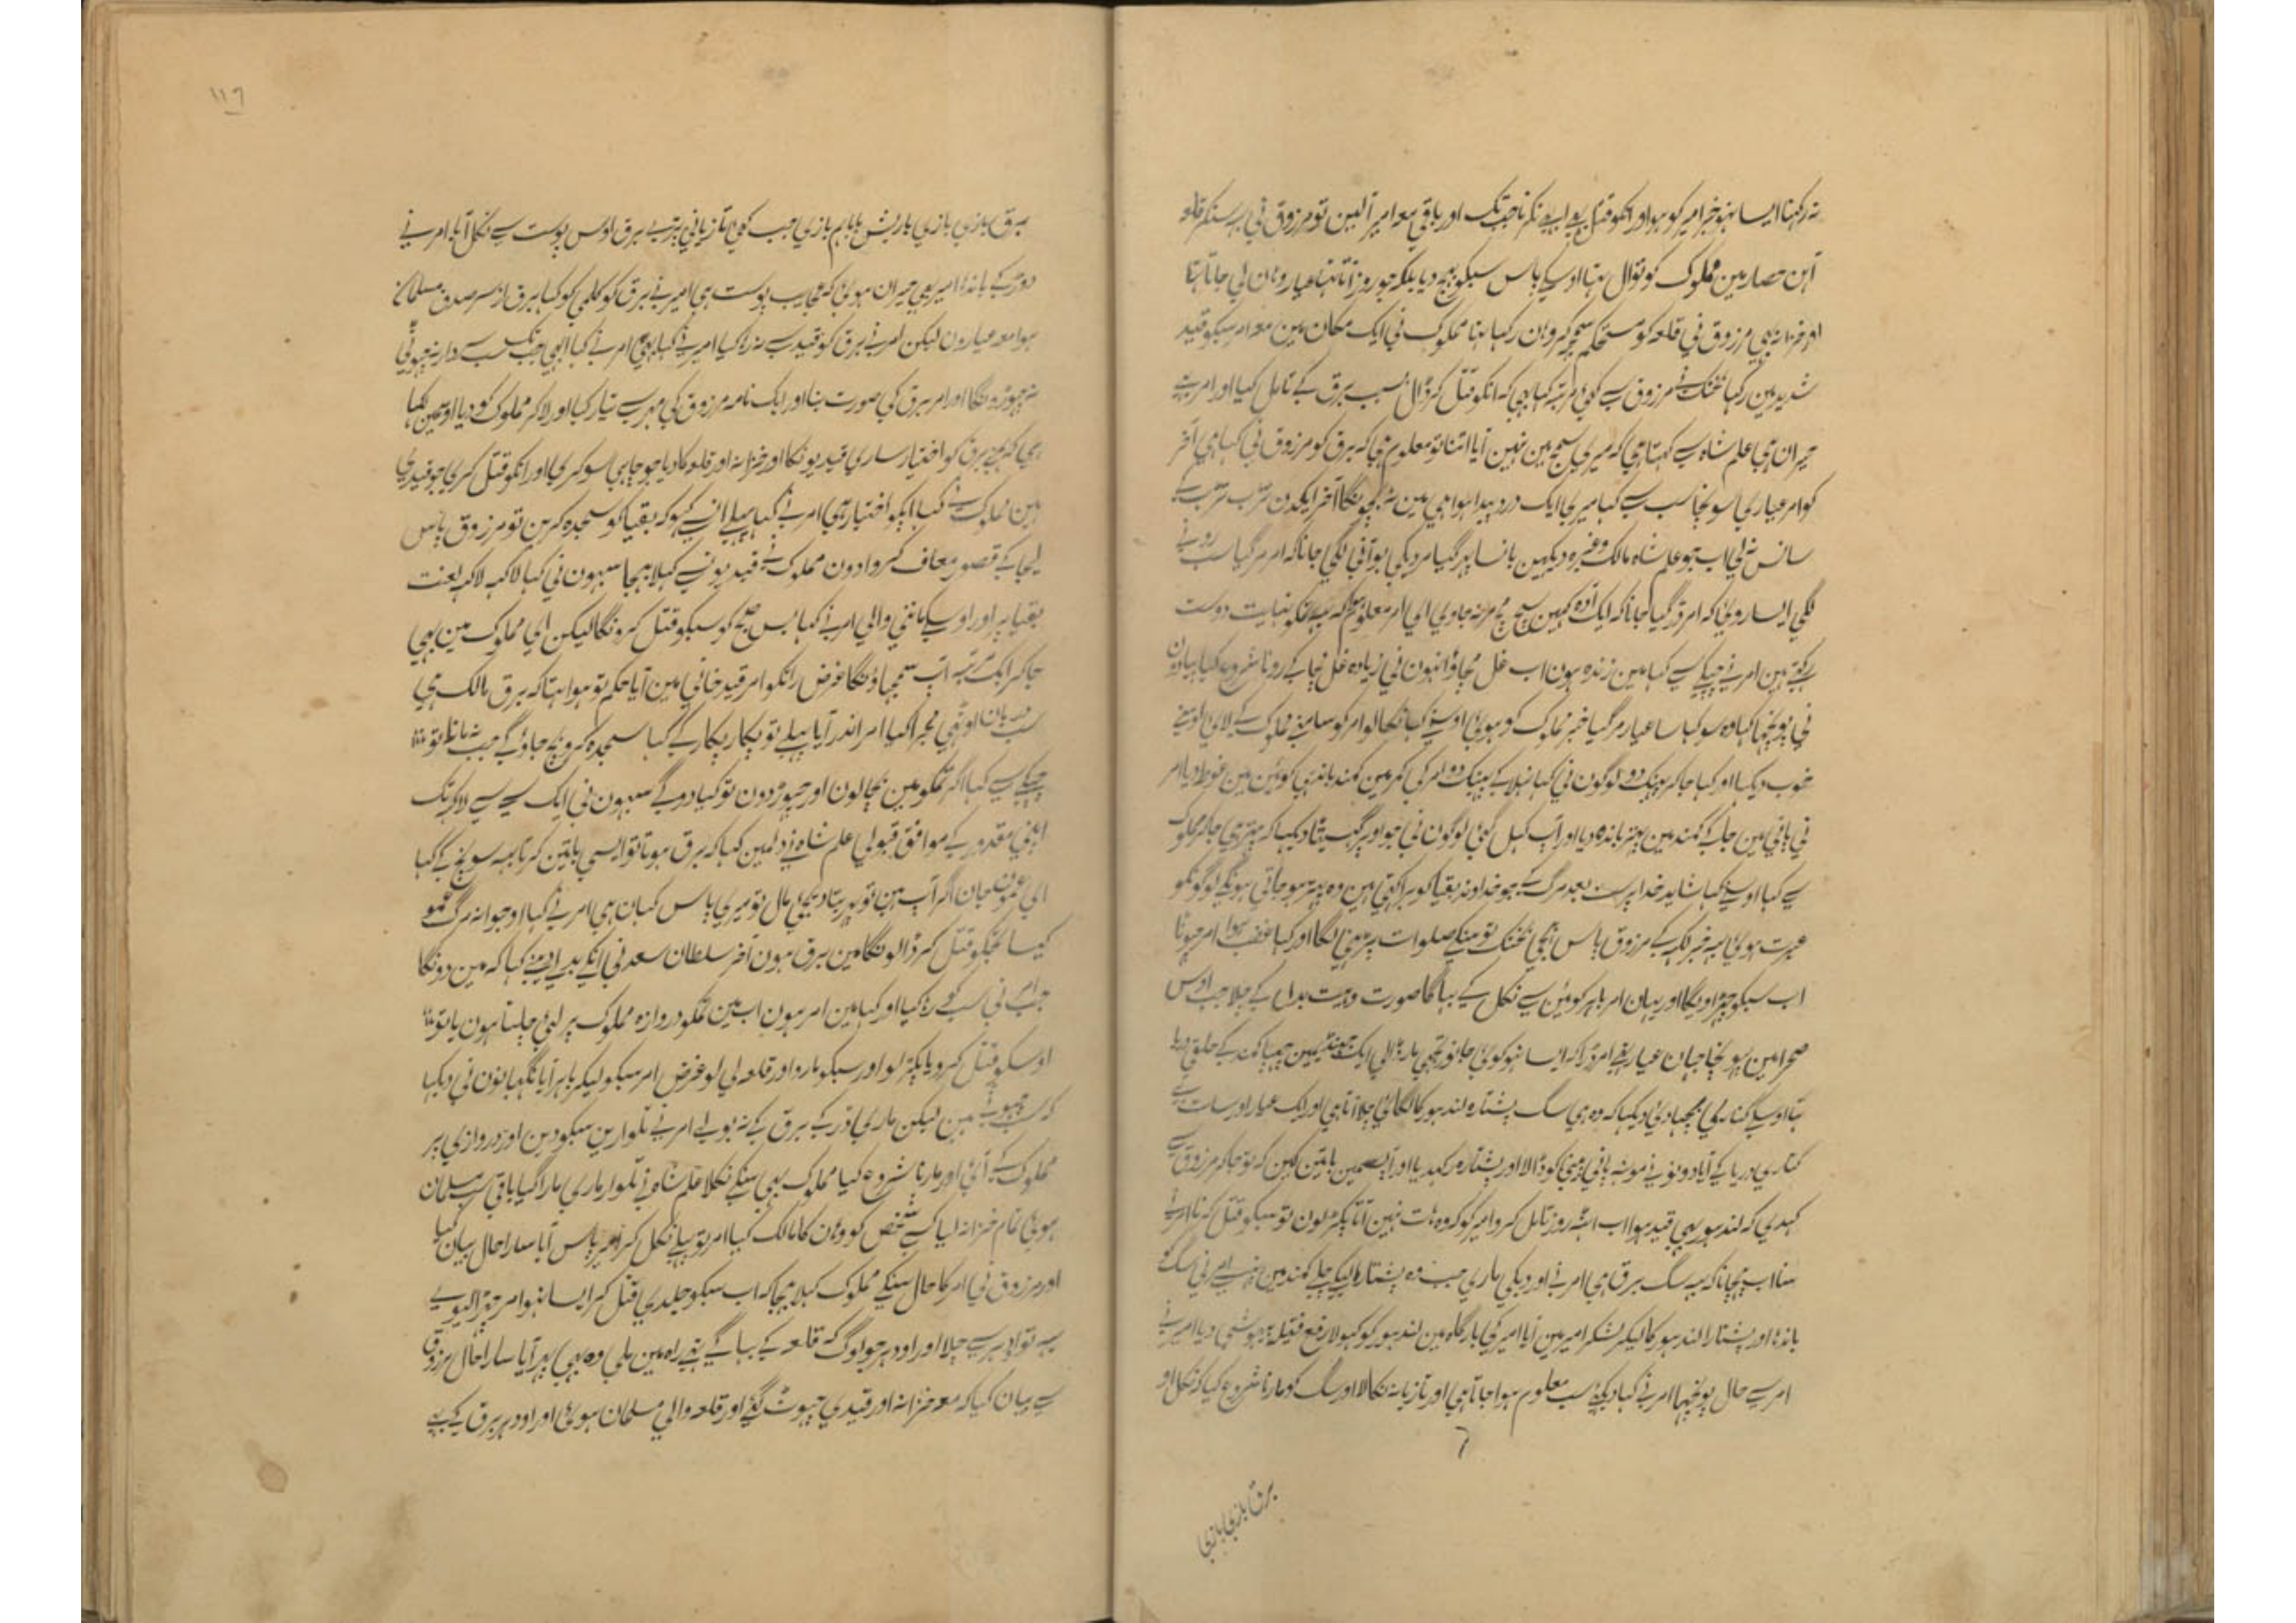 نہ رکہنا ایسا نہو خبر امیر کو ہو اور انکو قتل بہی ابہی نکرنا جب تک اور باقی معہ امیر آلین تو مرزوق نی یہ سنکر قلعہ
آہن حصار مین مملوک کوتوال تہا اوسکے پاس سبکو بہیج دیا بلکہ جو روز آتا تہا عیار وہان لی جاتا تہا
اور خزانہ بہی مرزوق نی قلعہ کو مستحکم سمجہکر وہان رکہا تہا مملوک نی ایک مکان مین معہ امر سبکو قید
شدید مین رکہا بختک نے مرزوق سے کئی مرتبہ کہا بہی کہ انکو قتل کر ڈال بسبب برق کے تامل کیا اور امر نے
حیران ہی علم شاہ سے کہتا ہی کہ میری سمجہ مین نہین آیا اتنا تو معلوم ہی کہ برق کو مرزوق نی کہا ہی آخر
کو امر عیاری سونچا سب سے کہا میری ایک درد پیدا ہوا ہی مین نہ بچونگا آخر ایکدن تڑپ تڑپ کے
سانس نہ لی اب جو علم شاہ مالک وغیرہ دیکہین بانسا پہر گیا مردیکی بو آنی لگی جانا کہ امر مر گیا سب رونے
لگی ایسا روئی کہ امر ڈر گیا جانا کہ ایک آدہ کہین سچ مچ مر نہ جاوی الی امر معلوم ہوا کہ یہ تمکو نہایت دوست
رکہتے ہین امر نے چپکے سے کہا مین زندہ ہون اب غل مچاؤ انہون نی زیادہ غل مچا کے رونا شروع کیا پیادون
نی پوچہا کہا وہ سو کہا سا عیار مر گیا خبر مملوک کو ہوئی اوسنے کہا نکالو امر کو سامنے مملوک کے لائی اوسنے
خوب دیکہا اور کہا جا کر پہینک دو لوگون نی کہا نہلا کے پہینک دو امر کی کمر مین کمند باندہی کوئین مین غوطہ دیا امر
نی پانی مین جا کے کمند مین پتہر باندہ دیا اور آپ کہل گئی لوگون نی جو اوپر گہسیٹا دیکہا کہ پتہر ہی جا کر مملوک
سے کہا اوسنے کہا شاید خدا پرست بعد مرگ کے جو خداوند بقیا کو برا کہتی ہین وہ پتہر ہو جاتی ہونگے لوگونکو
عبرت ہوئی یہ خبر لکہ کے مرزوق پاس بہیجی بختک تو سنکے صلوات پڑہنی لگا اور کہا غضب ہوا امر چہوٹا
اب سبکو چہڑاویگا اور یہان امر باہر کوئین سے نکل کے بہاگا صورت وہئیت بدل کے چلا جب اوس
صحرا مین پہونچا جہان عیار تہے امر ڈرا کہ ایسا نہو کوئی جانور مجہی مار ڈالی ایک جہنڈ مین چہپا کمند کے حلقے دریا
تہا اوسکے کناری بچہا دئی دیکہا کہ وہ ہی سگ پشتارہ لندہور کا لگائی چلا آتا ہی اور ایک عیار اور ساتہ ہے
کناری دریا کے آیا دونون نے مونہہ پانی پینے کو ڈالا اور پشتارہ رکہدیا اور آپسمین باتین کہین کہ تو جا کہ مرزوق سے
کہدی کہ لندہور بہی قید ہوا اب اٹہ روز تامل کر وامیر کو کہ وہ ہات نہین آتا پکڑ لون تو سبکو قتل کرنا امر نے
سنا اب پہچانا کہ یہ سگ برق ہی امر نے اور دیکی ماری جب وہ پشتارہ لیکے چلے کمند مین پہنسے امر نی سگ
باندہا اور پشتارا لندہور کا لیکر لشکر امیر مین آیا امیر کی بارگاہ مین لندہور کو کہولا رفع فتیلہ بیہوشی دیا امیر نے
امر سے حال پوچہا امر نے کہا دیکہئے سب معلوم ہوا جاتا ہی اور تازیانہ نکالا اور سگ کو مارنا شروع کیا کہ نکل او
برق بازی بازی
۱۱۶
برق بازی بازی باریش بابا ہم بازی جب کئی تازیانی پڑے برق اوس پوست سے نکل آیا امر نے
دوڑ کے باندہا امیر بہی حیران ہوئی کہ عجایب پوست ہی امیر نے برق کو کلمے کو کہا برق از سر صدق مسلمان
ہوا معہ عیارون لیکن امر نے برق کو قید سے نہ رہا کیا امیر نے کہا بہی امر نے کہا ابہی جب تک سب سردار نہ چہوٹی
نہ چہوڑونگا اور امر برق کی صورت بنا اور ایک نامہ مرزوق کی مہر سے تیار کیا اور لاکر مملوک کو دیا اوسمین لکہا
ہی کہ ہمنے برق کو اختیار ساری قیدیونکا اور خزانہ اور قلعہ کا دیا جو چاہی سو کری اور انکو قتل کری جو قیدی
ہین مملوک نے کہا آپکو اختیار ہی امر نے کہا پہلے انسے کہو کہ بقیا کو سجدہ کرین تو مرزوق پاس
لیجا کے قصور معاف کروا دون مملوک نے قیدیونسے کہلا بہیجا سبہون نی کہا لاکہہ لاکہہ لعنت
بقیا پر اور اوسکے ماننی والی امر نے کہا بس صبح کو سبکو قتل کرونگا لیکن ای مملوک مین بہی
جا کر ایک مرتبہ آپ سمجہاؤنگا غرض راتکو امر قید خانی مین آیا حکم تو ہوا ہتا کہ برق مالک ہی
سب دربان اوٹہی مجرا کیا امر اندر آیا پہلے تو پکار پکار کے کہا سجدہ کرو بچ جاؤگے جب نہ مانا تو
چپکے سے کہا اگر تمکو مین بچالون اور چہوڑ دون تو کیا دوگے سبہون نی ایک سے لے لاکہہ تک
اپنی مقدور کے موافق قبولی علم شاہ نے دلمین کہا کہ برق ہوتا تو ایسی باتین کرتا یہ سونچ کے کہا
ای عمون جان اگر آپ ہین تو پہر بتا دیجی مال تو میری پاس کہان ہی امر نے کہا او جوانہ مرگ عمو
کیسا تجہکو قتل کر ڈالونگا مین برق ہون آخر سلطان سعد نی انکے بدلے اوسنے کہا کہ مین دونگا
جب امر نی سب کو رہا کیا اور کہا مین امر ہون اب مین تمکو دروازہ مملوک پر لیے چلتا ہون یا تو
اوسکو قتل کرو یا پکڑ لو اور سبکو مارو اور قلعہ لی لو غرض امر سبکو لیکر باہر آیا نگہبانون نی دیکہا
کہ سب چہوٹے ہین لیکن ماری ڈر کے برق کے نہ بولے امر نے تلوارین سبکو دین اور دروازی پر
مملوک کے آئی اور مارنا شروع کیا مملوک بہی سنکے نکلا علم شاہ نے تلوار ماری مارا گیا باقی سب مسلمان
ہوئی تمام خزانہ لیا کسے شخص کو وہان کا مالک کیا امر تو پہلے نکل کر امیر پاس آیا سارا حال بیان کیا
اور مرزوق نی امر کا حال سنکے مملوک کہلا بہیجا کہ اب سبکو جلدی قتل کر ایسا نہو امر چہڑا لیوے
یہ تو اودہر سے چلا اور اودہر جو لوگ کہ قلعہ کے بہاگے تہے راہ مین ملی وہ بہی پہر آیا سارا حال مرزوق
سے بیان کیا کہ معہ خزانہ اور قیدی چہوٹ گئے اور قلعہ والی مسلمان ہوئی اور اودہر برق کے